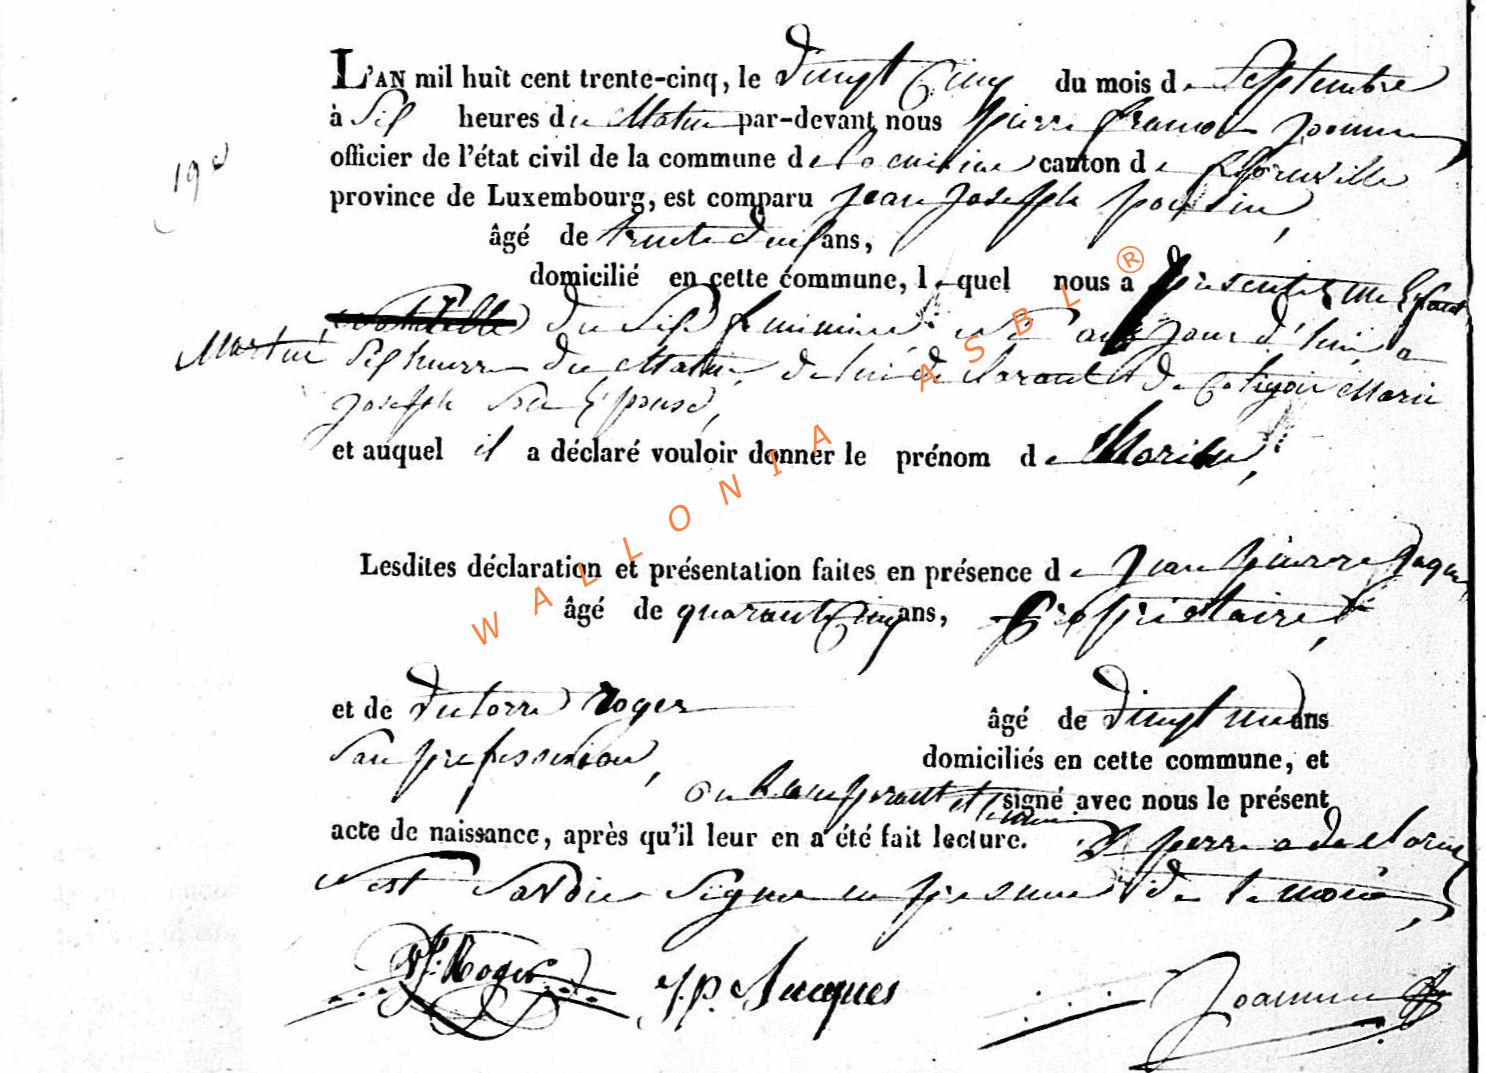 L'AN mil huit cent trente-cinq, le vingt cinq du mois de Septembre
à Six heures du Matin par-devant nous pierre francois
officier de l'état civil de la commune de la cuisine canton de florenville
19
province de Luxembourg, est comparu jean joseph
âgé de trente deux ans,
domicilié en cette commune, lequel nous a présenté un Enfant
du Sexe feminine né aujourd'hui a
Six heures du Matin, de lui déclarant et de Marie
joseph Son Epouse,
et auquel il a déclaré vouloir donner le prénom de
Lesdites déclaration et présentation faites en présence de jean pierre
âgé de quarante Cinq ans, propriétaire,
et de victorre Roger âgé de vingt un ans
San profession, domiciliés en cette commune, et
on et temoin signé avec nous le présent
acte de naissance, après qu'il leur en a été fait lecture. Le perre a declaré
Signer en presence de temoin
Roger J. P. Jacques
WALLONIA ASBL ®